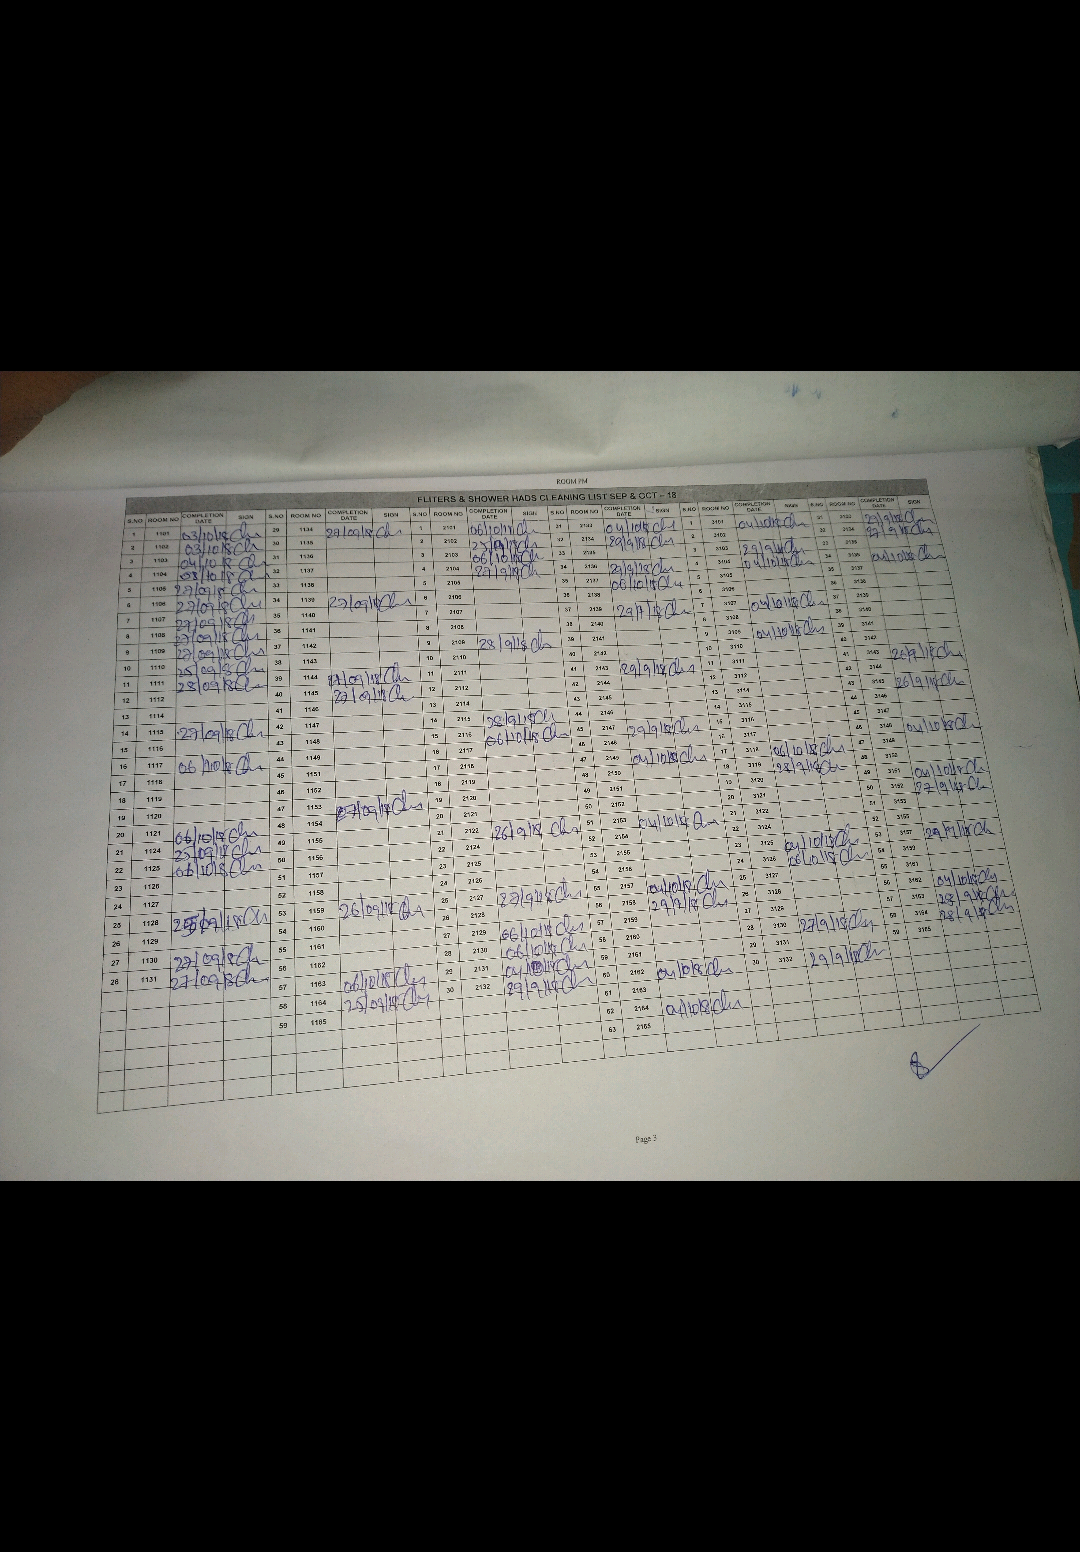 ROOM PM
FLITERS & SHOWER HADS CLEANING LIST SEP & OCT – 18
S.NO ROOM NO COMPLETION DATE SIGN
1 1101 03/10/18
2 1102 03/10/18
3 1103 04/10/18
4 1104 03/10/18
5 1105 27/09/18
6 1106 27/09/18
7 1107 27/09/18
8 1108 27/09/18
9 1109 27/09/18
10 1110 25/09/18
11 1111 28/09/18
12 1112
13 1114
14 1115 27/09/18
15 1116
16 1117 06/10/18
17 1118
18 1119
19 1120
20 1121 06/10/18
21 1124 25/09/18
22 1125 06/10/18
23 1126
24 1127
25 1128 25/09/18
26 1129
27 1130 27/09/18
28 1131 27/09/18
S.NO ROOM NO COMPLETION DATE SIGN
29 1134 27/09/18
30 1135
31 1136
32 1137
33 1138
34 1139 27/09/18
35 1140
36 1141
37 1142
38 1143
39 1144 27/09/18
40 1145 27/09/18
41 1146
42 1147
43 1148
44 1149
45 1151
46 1152
47 1153 27/09/18
48 1154
49 1155
50 1156
51 1157
52 1158
53 1159 26/09/18
54 1160
55 1161
56 1162
57 1163 06/10/18
58 1164 25/09/18
59 1165
S.NO ROOM NO COMPLETION DATE SIGN
1 2101 06/10/18
2 2102 27/9/18
3 2103 06/10/18
4 2104 27/9/18
5 2105
6 2106
7 2107
8 2108
9 2109 28/9/18
10 2110
11 2111
12 2112
13 2114
14 2115 28/9/18
15 2116 06/10/18
16 2117
17 2118
18 2119
19 2120
20 2121
21 2122 26/9/18
22 2124
23 2125
24 2126
25 2127 27/9/18
26 2128
27 2129 06/10/18
28 2130 06/10/18
29 2131 04/10/18
30 2132 29/9/18
S.NO ROOM NO COMPLETION DATE SIGN
31 2133 04/10/18
32 2134 29/9/18
33 2135
34 2136 29/9/18
35 2137 06/10/18
36 2138
37 2139 29/9/18
38 2140
39 2141
40 2142
41 2143 29/9/18
42 2144
43 2145
44 2146
45 2147 29/9/18
46 2148
47 2149 04/10/18
48 2150
49 2151
50 2152
51 2153 04/10/18
52 2154
53 2155
54 2156
55 2157 04/10/18
56 2158 29/9/18
57 2159
58 2160
59 2161
60 2162 04/10/18
61 2163
62 2164 04/10/18
63 2165
S.NO ROOM NO COMPLETION DATE SIGN
1 3101 04/10/18
2 3102
3 3103 29/9/18
4 3104 04/10/18
5 3105
6 3106
7 3107 04/10/18
8 3108
9 3109 04/10/18
10 3110
11 3111
12 3112
13 3114
14 3115
15 3116
16 3117
17 3118 06/10/18
18 3119 28/9/18
19 3120
20 3121
21 3122
22 3124
23 3125 04/10/18
24 3126 06/10/18
25 3127
26 3128
27 3129
28 3130 27/9/18
29 3131
30 3132 29/9/18
S.NO ROOM NO COMPLETION DATE SIGN
31 3133 29/9/18
32 3134 27/9/18
33 3135
34 3136 04/10/18
35 3137
36 3138
37 3139
38 3140
39 3141
40 3142
41 3143 26/9/18
42 3144
43 3145 26/9/18
44 3146
45 3147
46 3148 04/10/18
47 3149
48 3150
49 3151 04/10/18
50 3152 27/9/18
51 3153
52 3155
53 3157 29/9/18
54 3159
55 3161
56 3162 04/10/18
57 3163 28/9/18
58 3164 28/9/18
59 3165
Page 3